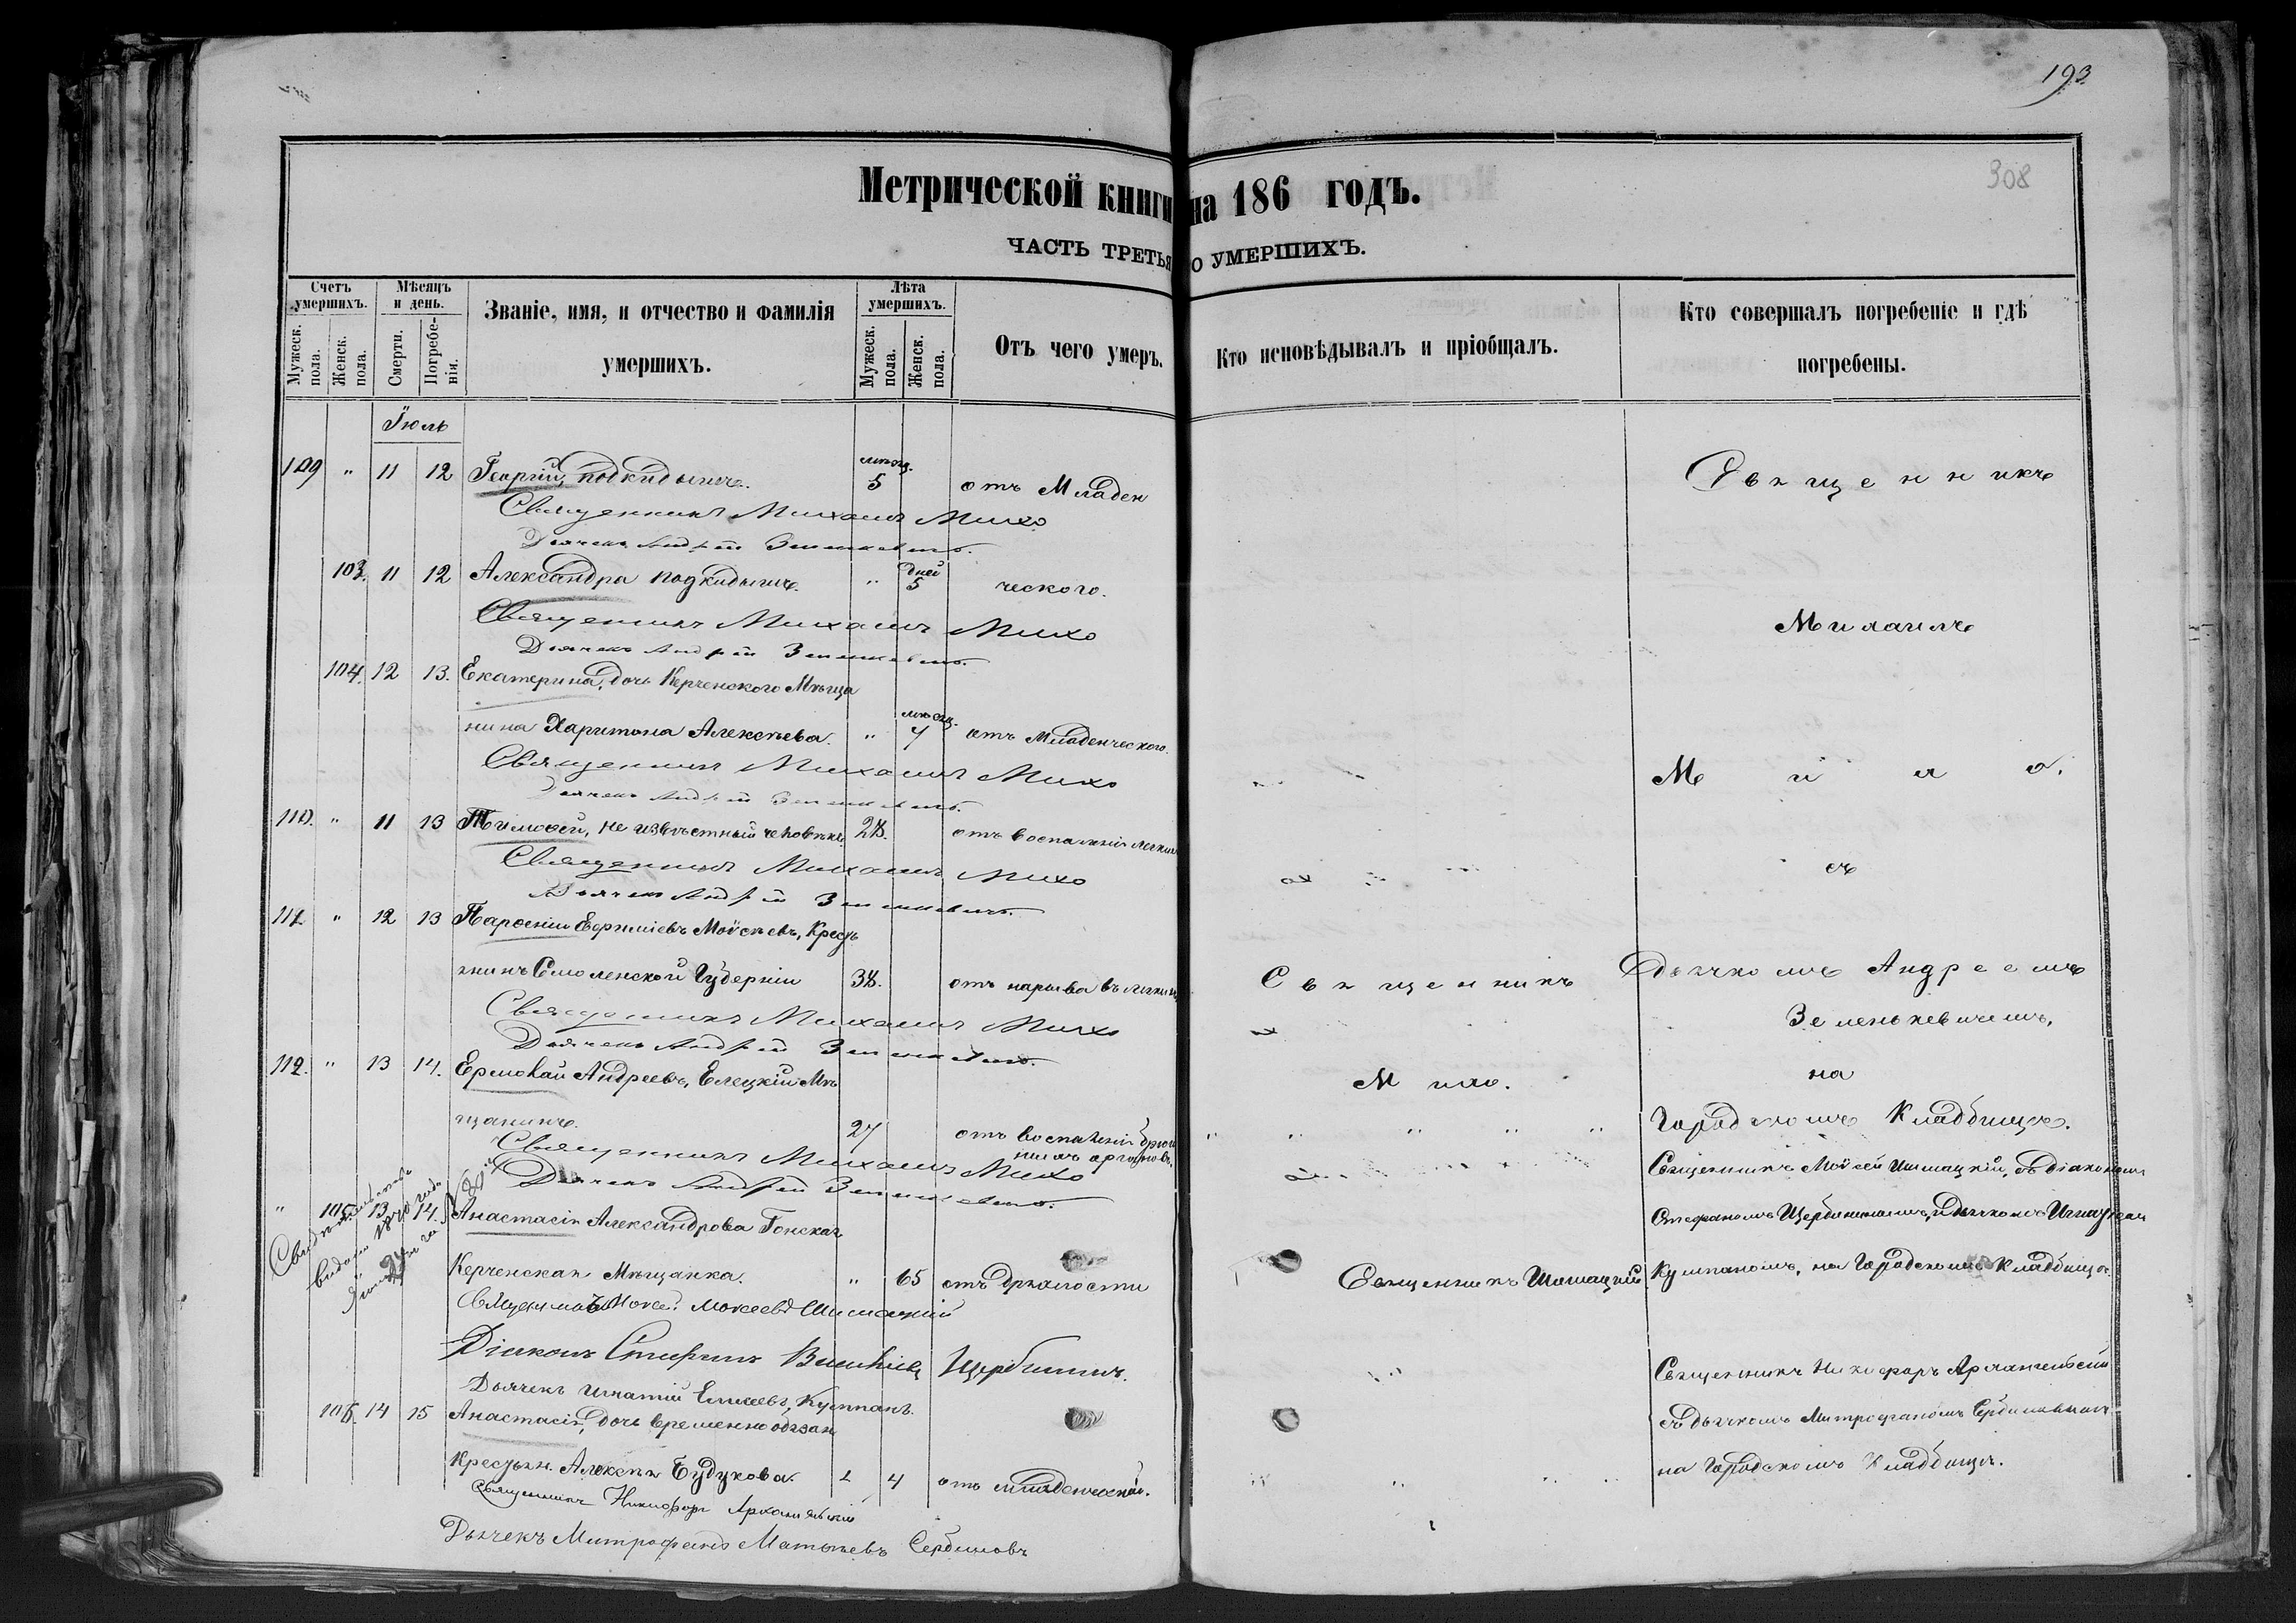 193
308
Метрической книги на 186 годъ.
ЧАСТЬ ТРЕТЬЯ О УМЕРШИХЪ.
Счетъ умершихъ.
Мужеск. пола.
Женск. пола.
Мѣсяцъ и день.
Смерти.
Погребе-нія.
Званіе, имя, и отчество и фамилія
умершихъ.
Лѣта умершихъ.
Мужеск. пола.
Женск. пола.
Отъ чего умеръ.
Кто исповѣдывалъ и пріобщалъ.
Кто совершалъ погребеніе и гдѣ
погребены.
Іюль
109 " 11 12 Георгій, подкидышъ. мѣсяц. 5 отъ Младен
Священникъ Михаилъ Михо
Дьячекъ Андрей Зеленкевичъ.
103. 11 12 Александра подкидышъ. " дней 5 ческого.
Священникъ Михаилъ Михо
Дьячекъ Андрей Зеленкевичъ.
104. 12 13. Екатерина, дочь Керченского Мѣща
нина Харитона Алексѣева. " мѣсяц. 7 отъ Младенческого.
Священникъ Михаилъ Михо
Дьячекъ Андрей Зеленкевичъ.
110. " 11 13 Тимофей, не извѣстный человѣкъ 28. отъ воспаленія легких
Священникъ Михаилъ Михо
Дьячекъ Андрей Зеленкевичъ.
111 " 12 13 Парфеній Евфиміевъ Моисѣевъ, Крестъ
янинъ Смоленской Губерніи 38. отъ нарыва въ легких
Священникъ Михаилъ Михо
Дьячекъ Андрей Зеленкевичъ.
112. " 13 14. Ермолай Андреевъ, Елецкій Мѣ
щанинъ. 27 отъ воспаленія брюш
ныхъ органовъ.
Священникъ Михаилъ Михо
Дьячекъ Андрей Зеленкевичъ.
" 105. 13 14. Анастасія Александрова Гонская
Керченская Мѣщанка. " 65 отъ дряхлости
Священникъ Моисей Шимацкій
Діаконъ Стефанъ Щербининъ.
Дьячекъ Игнатій Елисеевъ, Кумпанъ.
106. 14 15 Анастасія, дочь временно обязан
Крестьян. Алексѣя Будукова. 4 отъ младенческой.
Священникъ Никифоръ Архангельскій
Дьячекъ Митрофанъ Матвѣевъ Сербиновъ
Священникъ
Михо.
Священникъ Шимацкій
Священникъ
Михаилъ
Михо.
съ
Дьячкомъ Андреемъ
Зеленькевичемъ,
на
Городскомъ Кладбищѣ.
Священникъ Моисей Шимацкій, съ діакономъ
Стефаномъ Щербининымъ, и Дьячкомъ Игнатіемъ
Кумпаномъ, на Городскомъ Кладбищѣ.
Священникъ Никифоръ Архангельскій
съ дьячкомъ Митрофаномъ Сербиновымъ
на Городскомъ Кладбищѣ.